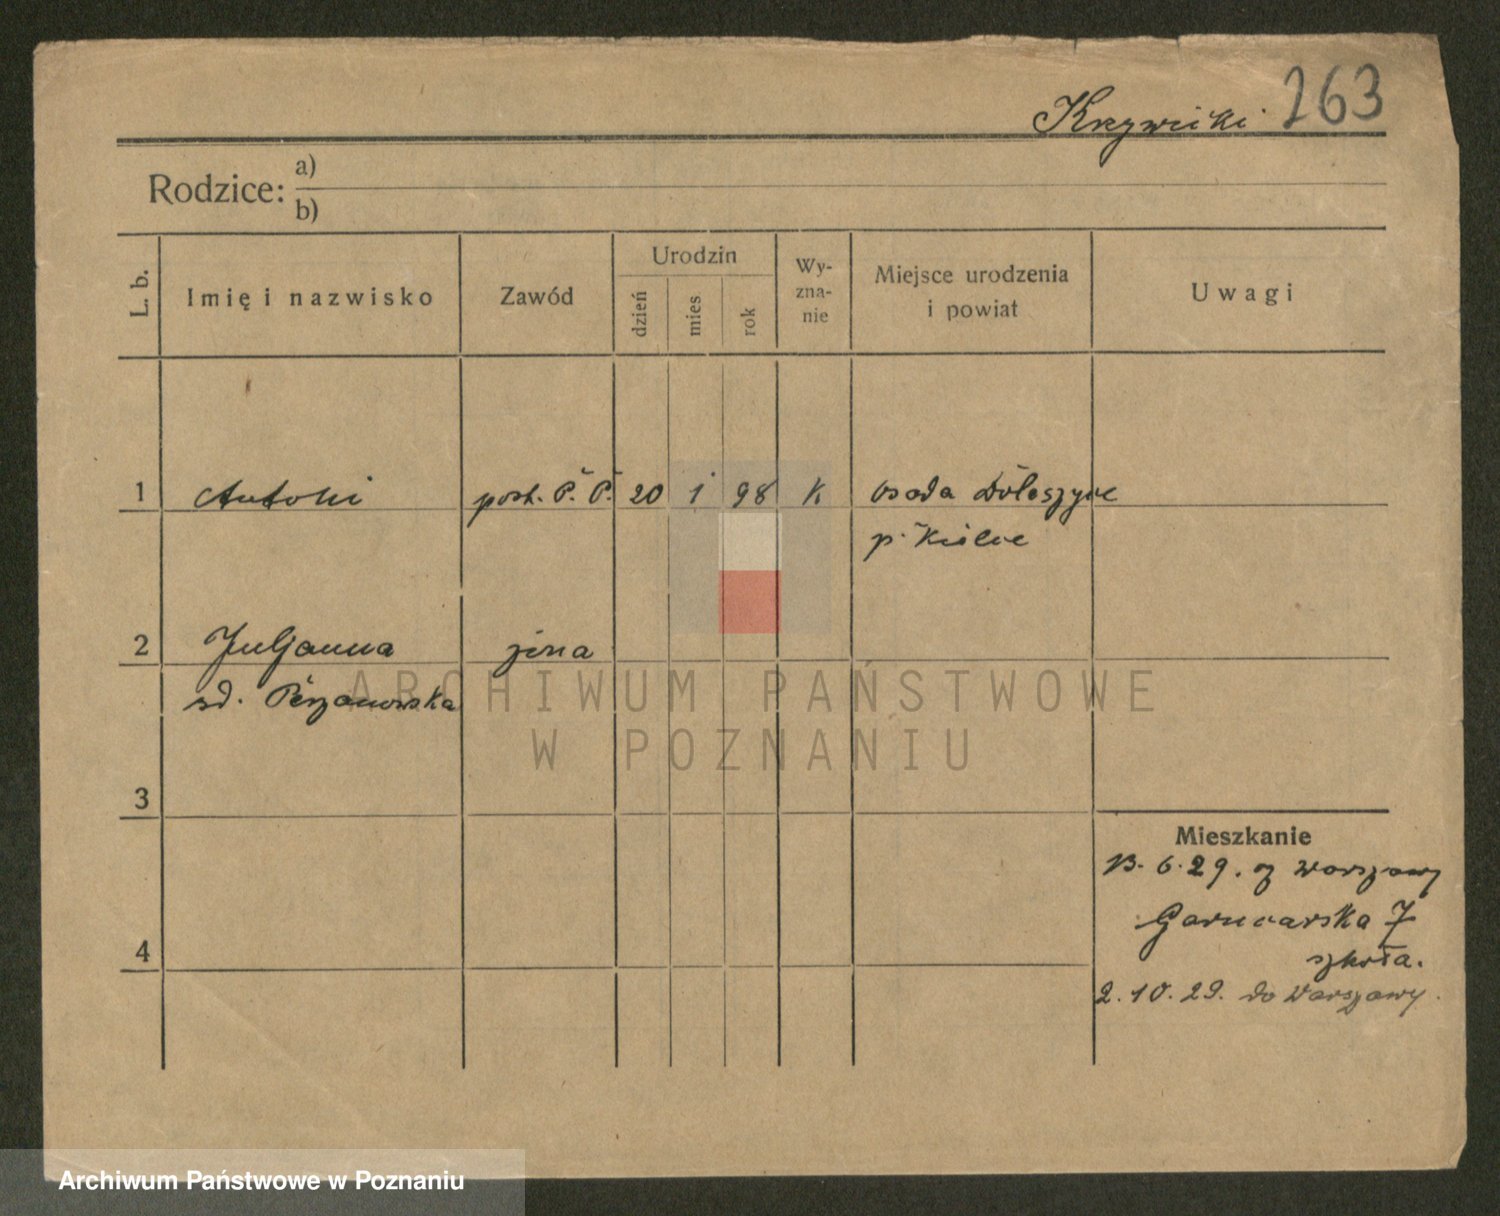 Krzywicki 263
Rodzice: a)
b)
L. b.
Imię i nazwisko
Zawód
Urodzin
dzień
mies
rok
Wy-
zna-
nie
Miejsce urodzenia
i powiat
Uwagi
1 Antoni post. P. P. 20 1 98 K osada
p. Kielce
2 Juljanna żona
3
4
Mieszkanie
13. 6. 29. z Warszawy
Garncarska 7
szkoła.
2. 10. 29. do Warszawy.
ARCHIWUM PAŃSTWOWE
W POZNANIU
Archiwum Państwowe w Poznaniu